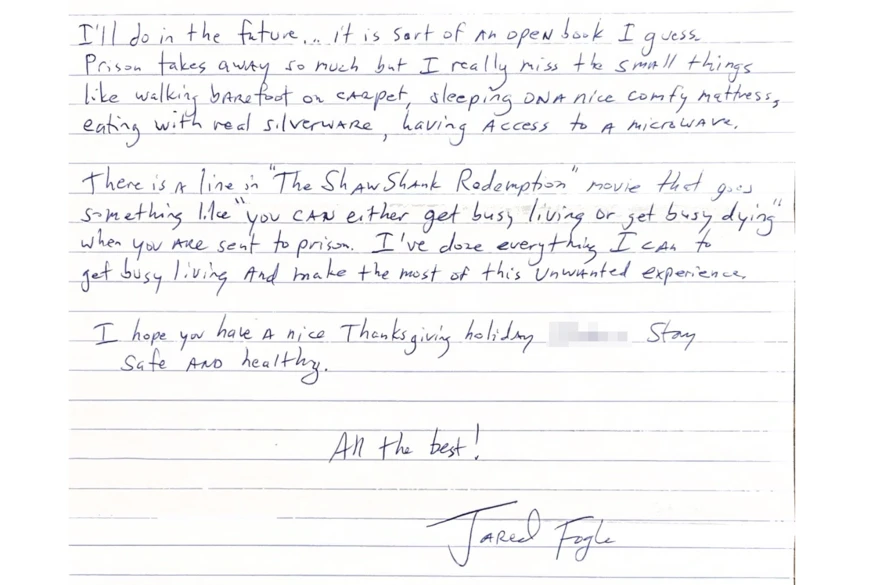 I'll do in the future... it is sort of an open book I guess.
Prison takes away so much but I really miss the small things
like walking barefoot on carpet, sleeping on a nice comfy mattress,
eating with real silverware, having access to a microwave.
There is a line in "The Shawshank Redemption" movie that goes
something like "you can either get busy living or get busy dying"
when you are sent to prison. I've done everything I can to
get busy living and make the most of this unwanted experience.
I hope you have a nice Thanksgiving holiday Stay
Safe and healthy.
All the best!
Jared Fogle